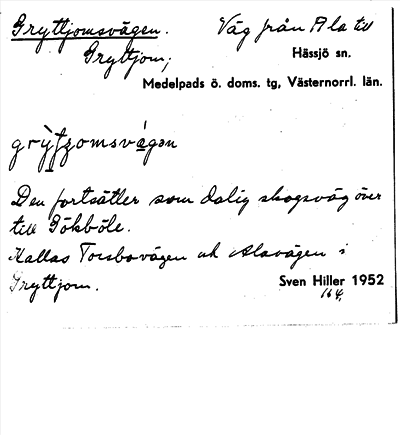 Gryttjomsvägen. Väg från Ala till
Gryttjom; Hässjö sn.
Medelpads ö. doms. tg, Västernorrl. län.
Den fortsätter som dålig skogsväg över
till Gökböle.
Kallas Torsbovägen och Alavägen i
Gryttjom.
Sven Hiller 1952
164.